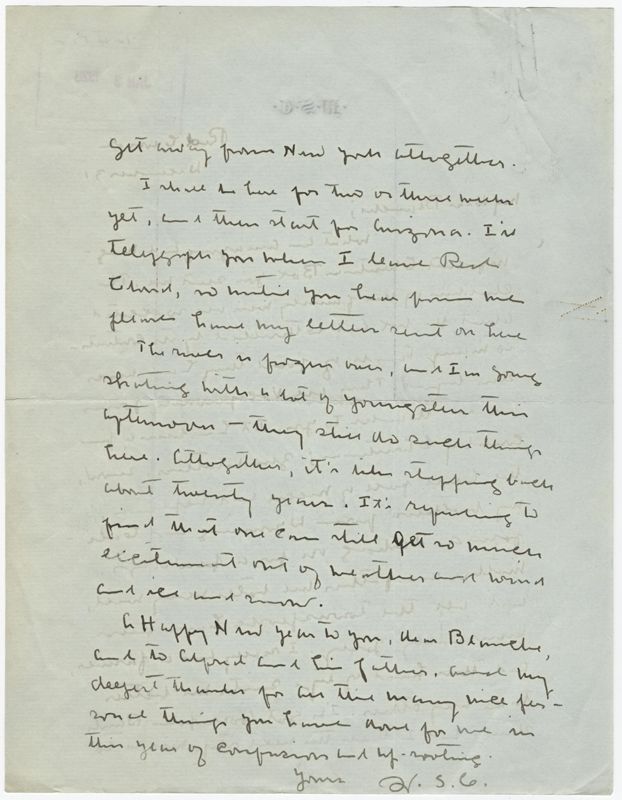 get away from New York altogether.
I shall be here for two or three weeks
yet, and then start for Arizona. I'll
telegraph you when I leave Red
Cloud, so until you hear from me
please have my letters sent on here
The river is frozen over, and I'm going
skating with a lot of youngsters this
afternoon — they still do such things
here. Altogether, it's like stepping back
about twenty years. It's rejuvenating to
find that one can still get so much
excitement out of weather and wind
and ice and snow.
A Happy New Year to you, dear Blanche,
and to Alfred and his father, and my
deepest thanks for all the many nice per-
sonal things you have done for me in
this year of confusion and up-rooting.
Yours
W. S. C.